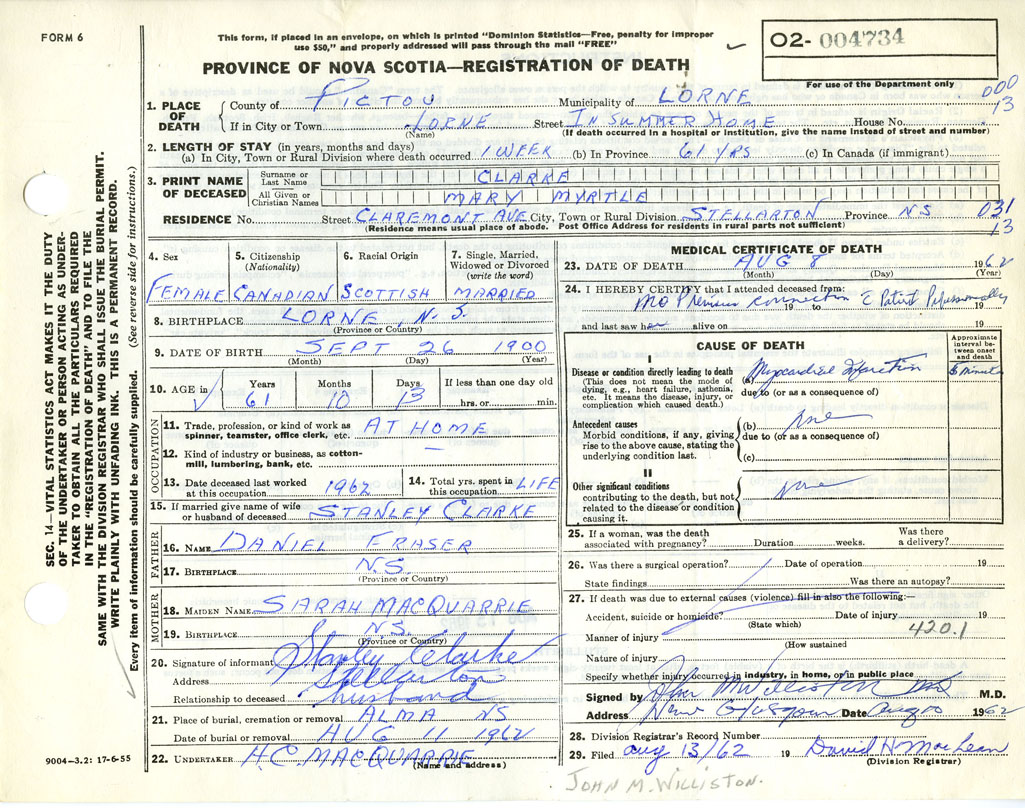 FORM 6
This form, if placed in an envelope, on which is printed "Dominion Statistics—Free, penalty for improper
use $50," and properly addressed will pass through the mail "FREE"
02- 004734
PROVINCE OF NOVA SCOTIA—REGISTRATION OF DEATH
For use of the Department only
000
13
1. PLACE OF DEATH
County of PICTOU Municipality of LORNE
If in City or Town LORNE Street IN SUMMER HOME House No.
(Name) (If death occurred in a hospital or institution, give the name instead of street and number)
2. LENGTH OF STAY (in years, months and days)
(a) In City, Town or Rural Division where death occurred 1 WEEK (b) In Province 61 YRS (c) In Canada (if immigrant)
3. PRINT NAME OF DECEASED
Surname or Last Name CLARKE
All Given or Christian Names MARY MYRTLE
RESIDENCE No. Street CLAREMONT AVE City, Town or Rural Division STELLARTON Province NS 031
(Residence means usual place of abode. Post Office Address for residents in rural parts not sufficient) 13
4. Sex FEMALE
5. Citizenship (Nationality) CANADIAN
6. Racial Origin SCOTTISH
7. Single, Married, Widowed or Divorced (write the word) MARRIED
8. BIRTHPLACE LORNE, N.S.
(Province or Country)
9. DATE OF BIRTH SEPT 26 1900
(Month) (Day) (Year)
10. AGE in Years 61 Months 10 Days 13 If less than one day old hrs. or min.
OCCUPATION
11. Trade, profession, or kind of work as spinner, teamster, office clerk, etc. AT HOME
12. Kind of industry or business, as cotton-mill, lumbering, bank, etc. —
13. Date deceased last worked at this occupation 1962
14. Total yrs. spent in this occupation LIFE
15. If married give name of wife or husband of deceased STANLEY CLARKE
FATHER
16. NAME DANIEL FRASER
17. BIRTHPLACE N.S.
(Province or Country)
MOTHER
18. MAIDEN NAME SARAH MACQUARRIE
19. BIRTHPLACE N.S.
(Province or Country)
20. Signature of informant Stanley Clarke
Address Stellarton
Relationship to deceased husband
21. Place of burial, cremation or removal ALMA NS
Date of burial or removal AUG 11 1962
22. UNDERTAKER H.C. MACQUARRIE
(Name and address)
MEDICAL CERTIFICATE OF DEATH
23. DATE OF DEATH AUG 8 1962
(Month) (Day) (Year)
24. I HEREBY CERTIFY that I attended deceased from:
No Previous connection c Patient Professionally
19 to 19
and last saw her alive on 19
CAUSE OF DEATH
Approximate interval between onset and death
I
Disease or condition directly leading to death
(This does not mean the mode of dying, e.g., heart failure, asthenia, etc. It means the disease, injury, or complication which caused death.)
(a) Myocardial Infarction 5 minutes
due to (or as a consequence of)
Antecedent causes
Morbid conditions, if any, giving rise to the above cause, stating the underlying condition last.
(b) none
due to (or as a consequence of)
(c)
II
Other significant conditions
contributing to the death, but not related to the disease or condition causing it.
none
25. If a woman, was the death associated with pregnancy? Duration weeks. Was there a delivery?
26. Was there a surgical operation? Date of operation 19
State findings Was there an autopsy?
27. If death was due to external causes (violence) fill in also the following:—
Accident, suicide or homicide? Date of injury 19
(State which) 420.1
Manner of injury
(How sustained
Nature of injury
Specify whether injury occurred in industry, in home, or in public place
Signed by John M Williston M.D.
Address New Glasgow Date Aug 10 1962
28. Division Registrar's Record Number
29. Filed Aug 13/62 19 David H MacLean
(Division Registrar)
JOHN M. WILLISTON.
SEC. 14—VITAL STATISTICS ACT MAKES IT THE DUTY
OF THE UNDERTAKER OR PERSON ACTING AS UNDER-
TAKER TO OBTAIN ALL THE PARTICULARS REQUIRED
IN THE "REGISTRATION OF DEATH" AND TO FILE THE
SAME WITH THE DIVISION REGISTRAR WHO SHALL ISSUE THE BURIAL PERMIT.
WRITE PLAINLY WITH UNFADING INK. THIS IS A PERMANENT RECORD.
Every item of information should be carefully supplied. (See reverse side for instructions.)
9004—3.2: 17-6-55